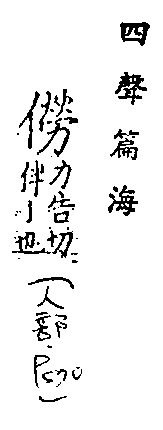 四聲篇海
僗力告切
伴也
(人部.P570)